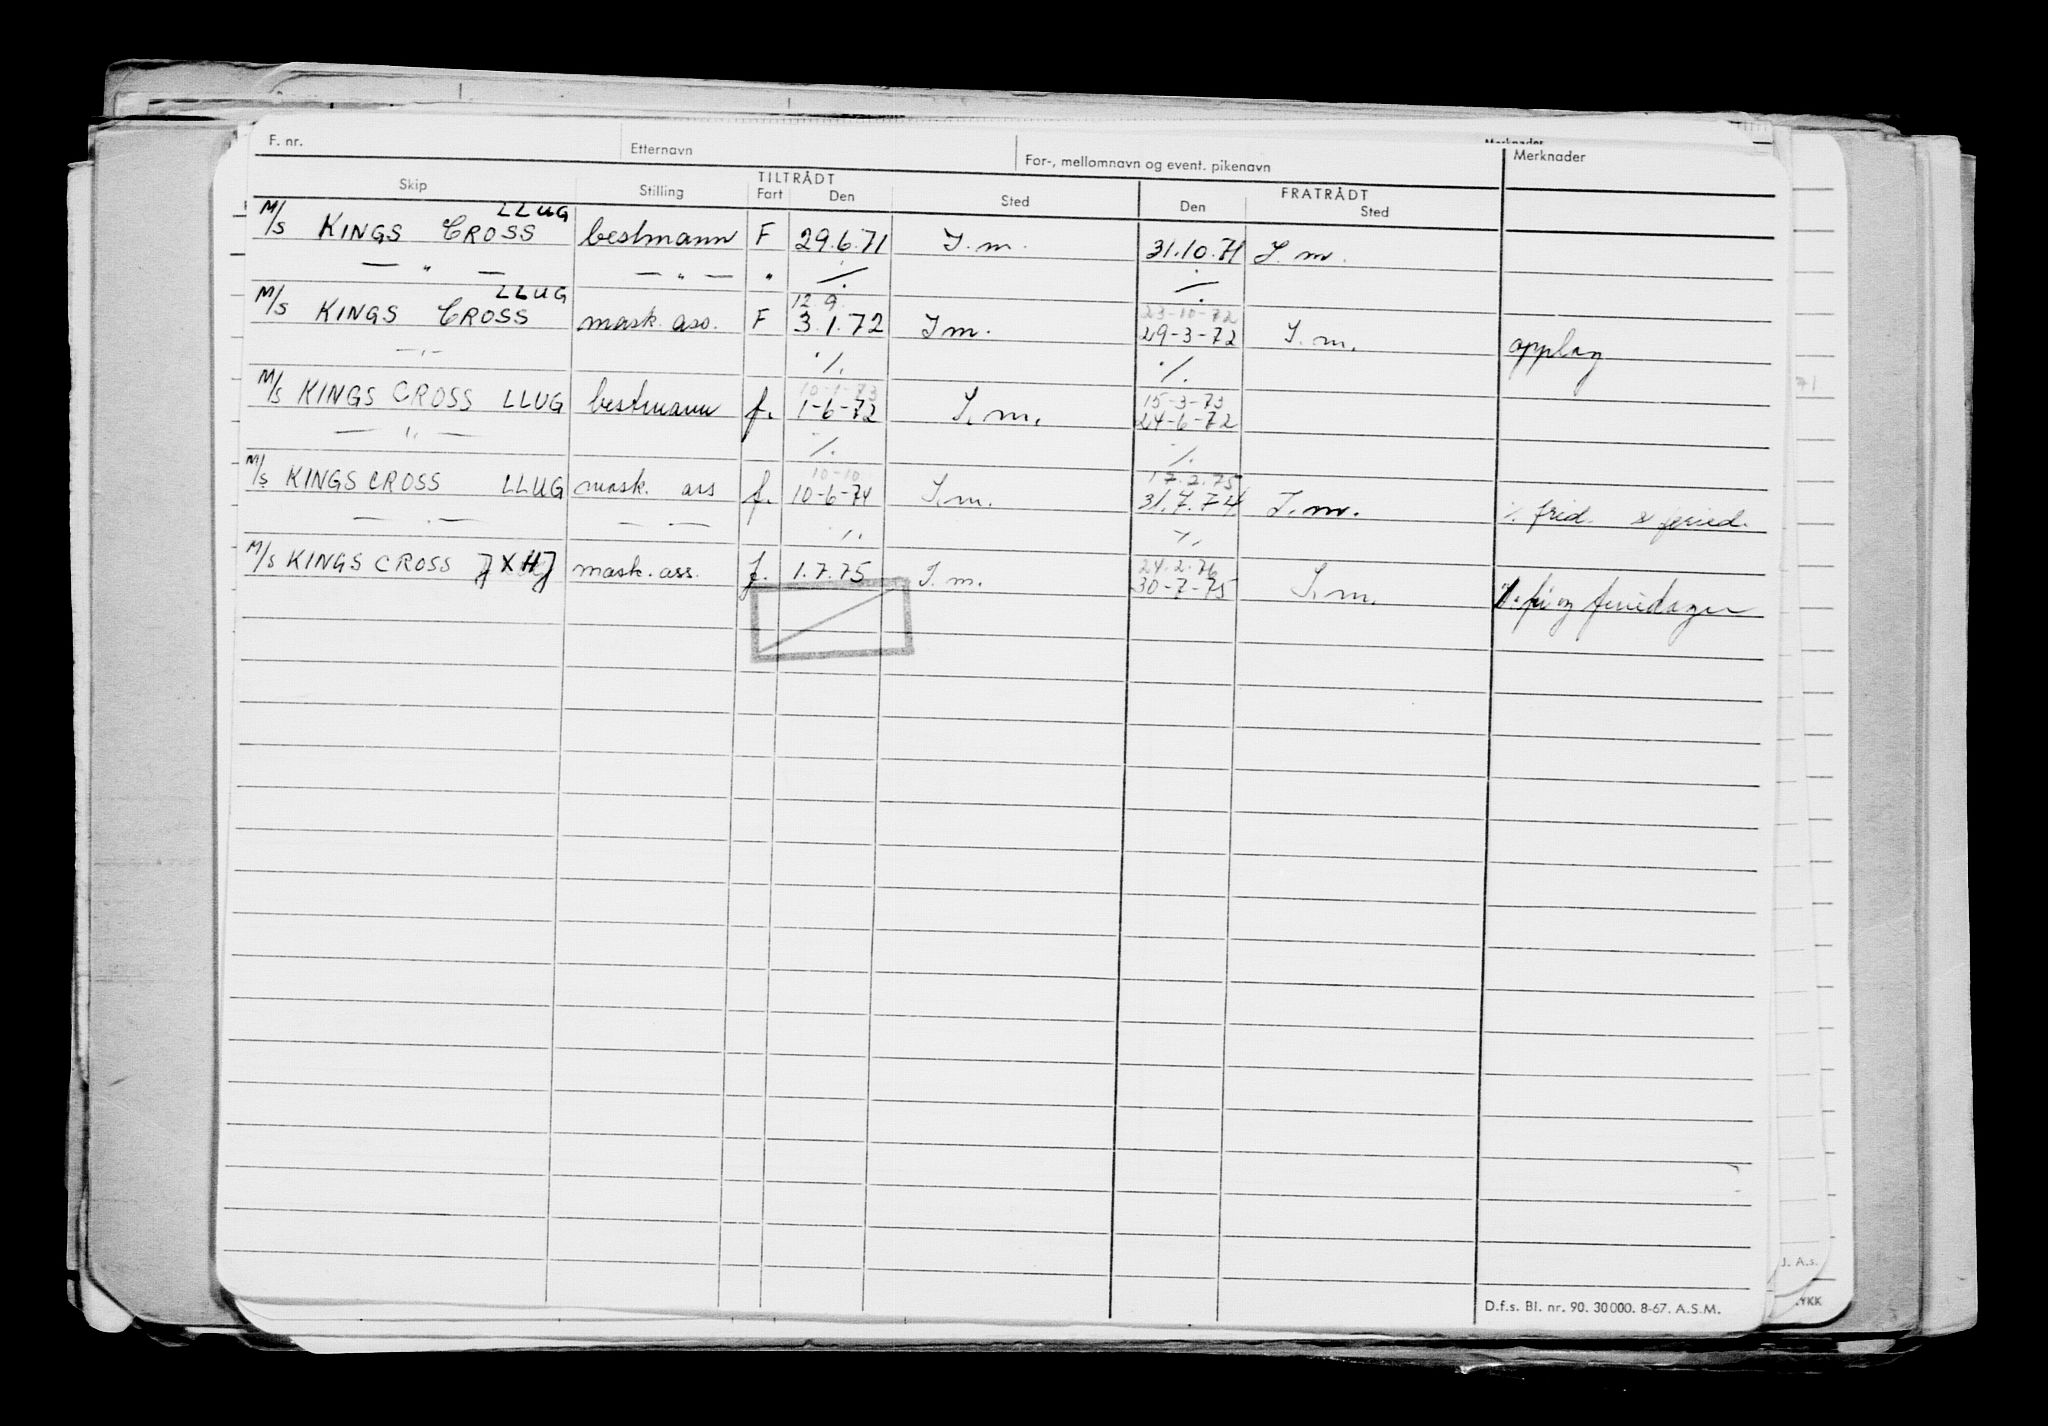 F. nr. Etternavn For-, mellomnavn og event. pikenavn Merknader
TILTRÅDT FRATRÅDT
Skip Stilling Fart Den Sted Den Sted
LLUG
M/S KINGS CROSS bestmann F 29.6.71 I.m. 31.10.71 I.m.
— " — — " — " ./. ./.
LLUG 12.9. 23-10-72
M/S KINGS CROSS mask. ass. F 3.1.72 I m. 29-3-72 I.m. opplag
— " — ./. ./.
10-1-73 15-3-73
M/S KINGS CROSS LLUG bestmann f. 1-6-72 I.m. 24-6-72
— " — ./. ./.
10-10 17.2.75
M/S KINGS CROSS LLUG mask. ass f. 10-6-74 I.m. 31.7.74 I.m. ./. frid. & feried.
— . — — . — ./. ./.
24.2.76
M/S KINGS CROSS mask. ass. f. 1.7.75 I.m. 30-7-75 I.m. ./. fri og feriedager
D.f.s. Bl. nr. 90. 30000. 8-67. A.S.M.
J. A.s.